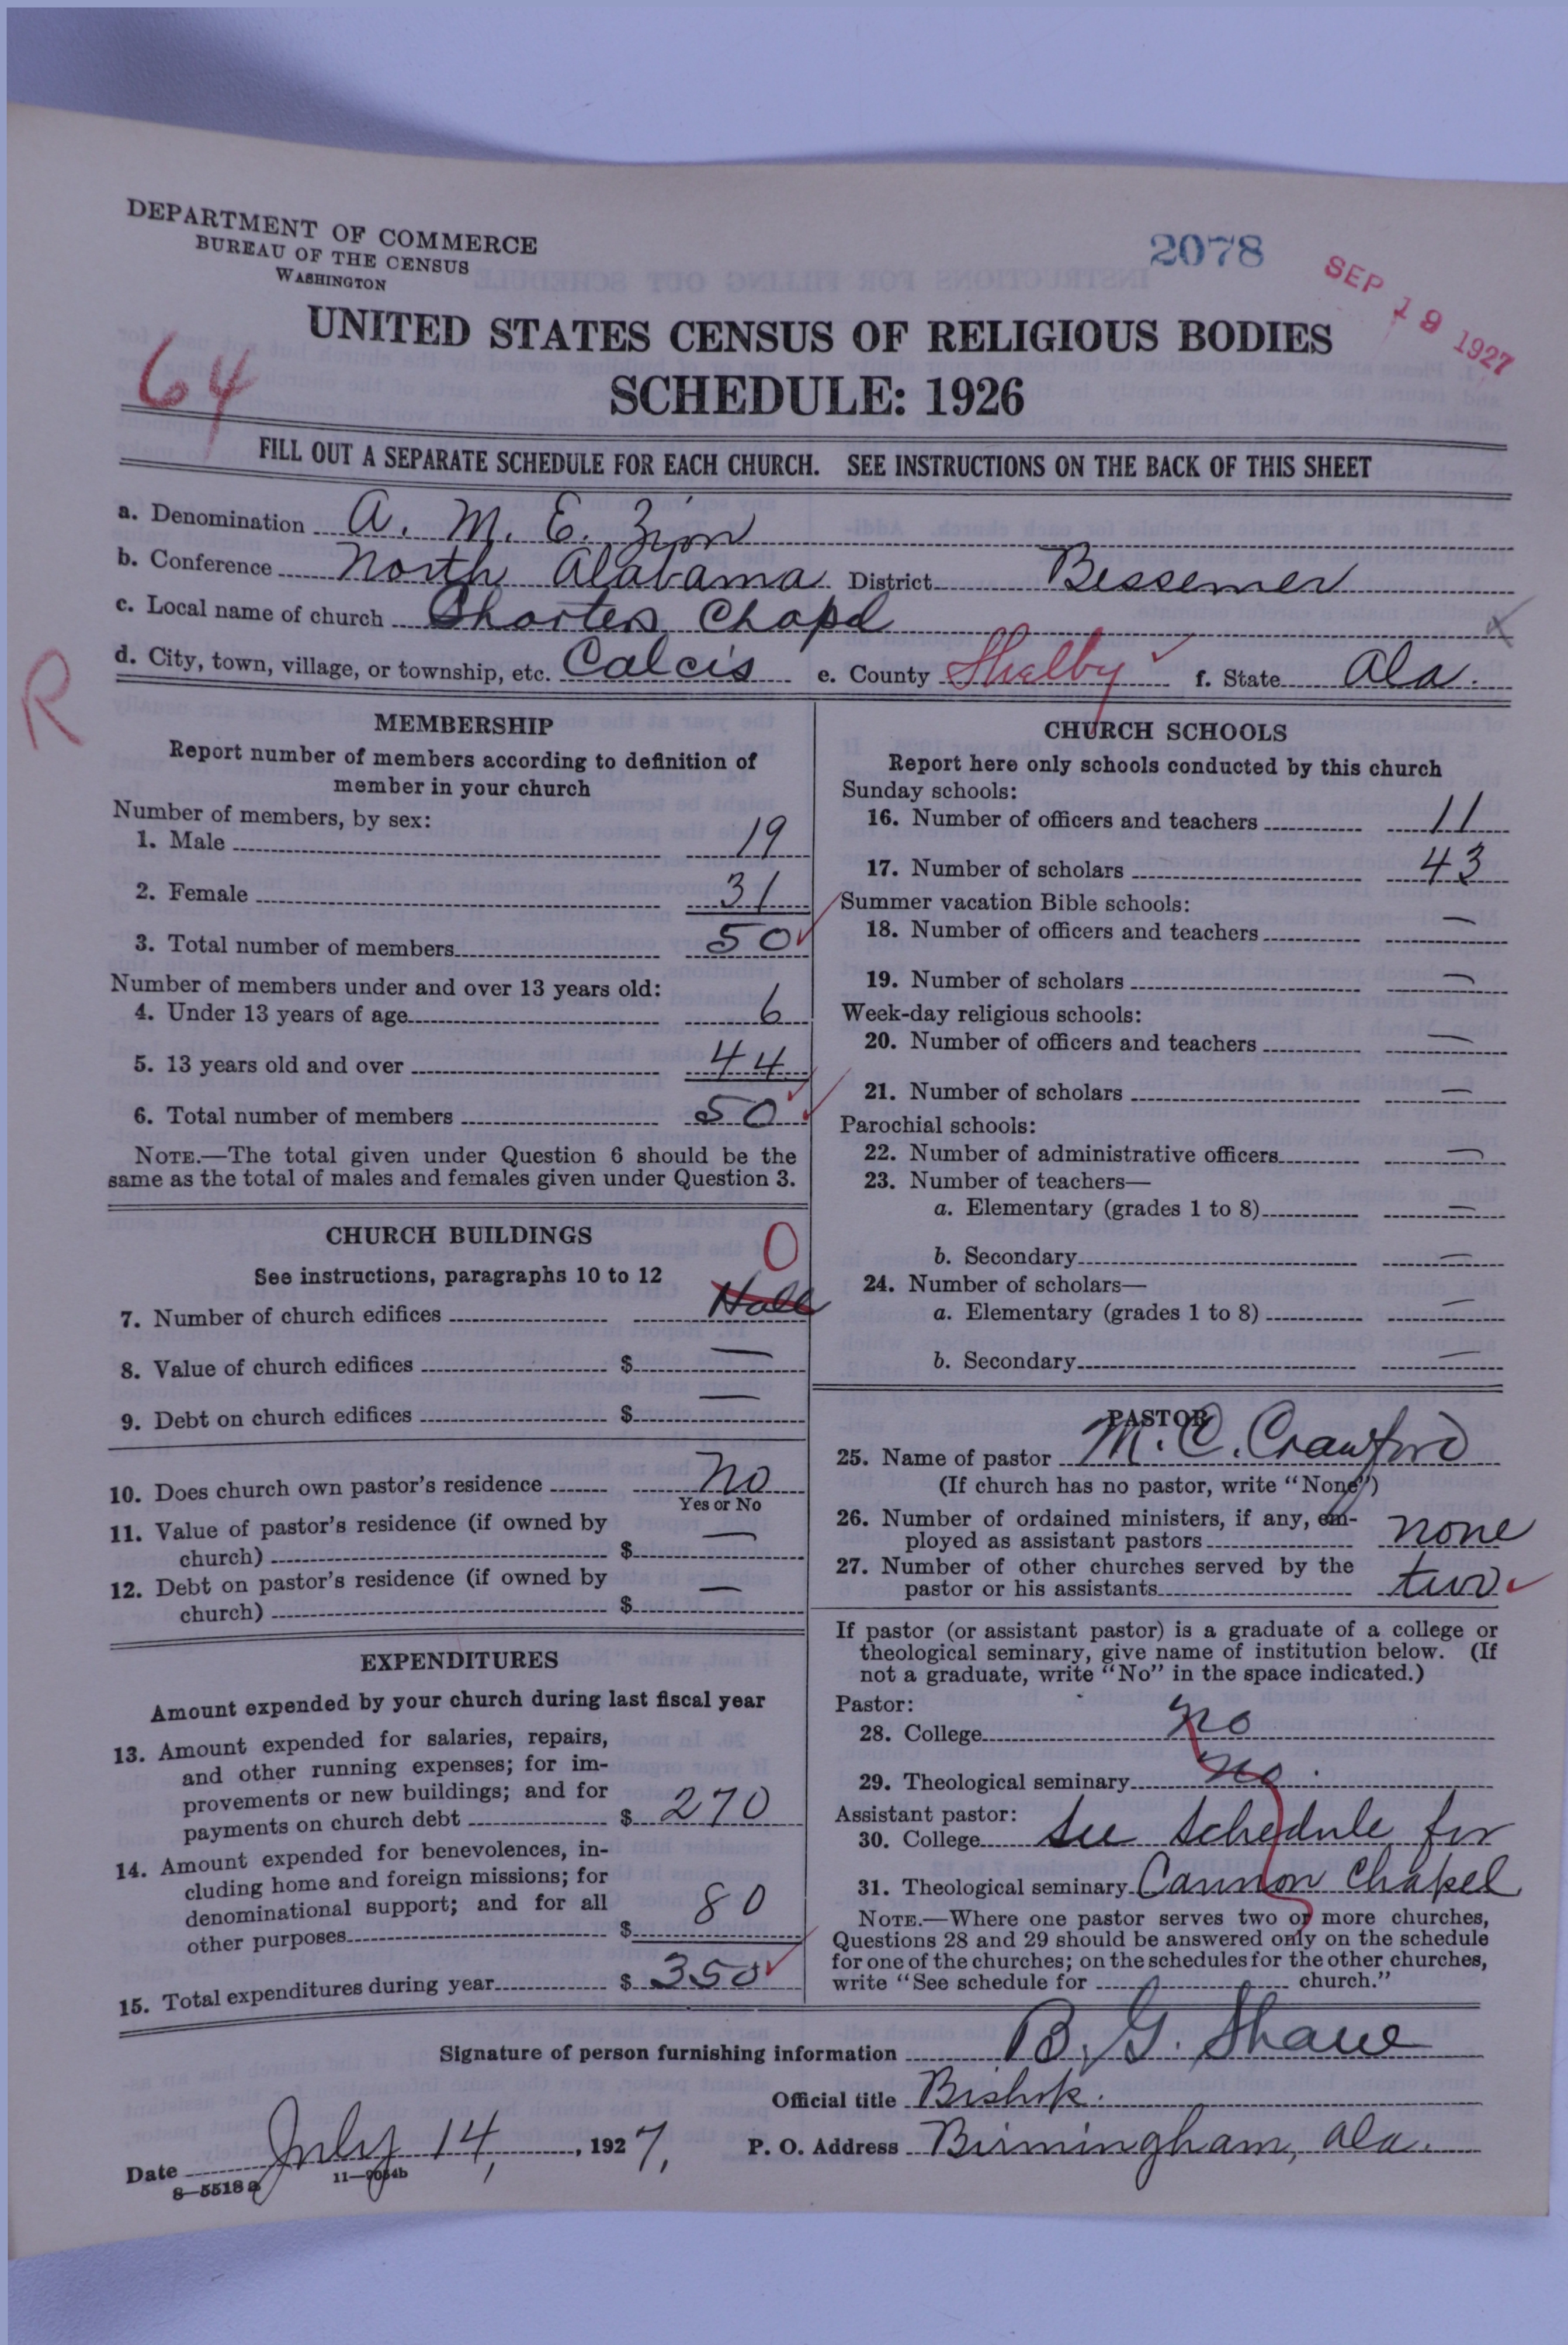 DEPARTMENT OF COMMERCE
BUREAU OF THE CENSUS
WASHINGTON
2078
SEP 19 1927
UNITED STATES CENSUS OF RELIGIOUS BODIES
64
SCHEDULE: 1926
FILL OUT A SEPARATE SCHEDULE FOR EACH CHURCH. SEE INSTRUCTIONS ON THE BACK OF THIS SHEET
a. Denomination A. M. E. Zion
b. Conference North Alabama District Bessemer
c. Local name of church Shorters Chapel
d. City, town, village, or township, etc. Calcis e. County Shelby f. State Ala.
R
MEMBERSHIP
Report number of members according to definition of
member in your church
Number of members, by sex:
1. Male 19
2. Female 31
3. Total number of members 50
Number of members under and over 13 years old:
4. Under 13 years of age 6
5. 13 years old and over 44
6. Total number of members 50
NOTE.—The total given under Question 6 should be the
same as the total of males and females given under Question 3.
CHURCH BUILDINGS
See instructions, paragraphs 10 to 12
0
7. Number of church edifices Hall
8. Value of church edifices $ —
9. Debt on church edifices $ —
10. Does church own pastor's residence no
Yes or No
11. Value of pastor's residence (if owned by
church) $ —
12. Debt on pastor's residence (if owned by
church) $ —
EXPENDITURES
Amount expended by your church during last fiscal year
13. Amount expended for salaries, repairs,
and other running expenses; for im-
provements or new buildings; and for
payments on church debt $ 270
14. Amount expended for benevolences, in-
cluding home and foreign missions; for
denominational support; and for all
other purposes $ 80
15. Total expenditures during year $ 350
CHURCH SCHOOLS
Report here only schools conducted by this church
Sunday schools:
16. Number of officers and teachers 11
17. Number of scholars 43
Summer vacation Bible schools:
18. Number of officers and teachers —
19. Number of scholars —
Week-day religious schools:
20. Number of officers and teachers —
21. Number of scholars —
Parochial schools:
22. Number of administrative officers —
23. Number of teachers—
a. Elementary (grades 1 to 8) —
b. Secondary —
24. Number of scholars—
a. Elementary (grades 1 to 8) —
b. Secondary —
PASTOR
25. Name of pastor M. C. Crawford
(If church has no pastor, write "None")
26. Number of ordained ministers, if any, em-
ployed as assistant pastors none
27. Number of other churches served by the
pastor or his assistants two
If pastor (or assistant pastor) is a graduate of a college or
theological seminary, give name of institution below. (If
not a graduate, write "No" in the space indicated.)
Pastor:
28. College no
29. Theological seminary no.
Assistant pastor:
30. College See Schedule for
31. Theological seminary Cannon Chapel
NOTE.—Where one pastor serves two or more churches,
Questions 28 and 29 should be answered only on the schedule
for one of the churches; on the schedules for the other churches,
write "See schedule for church."
Signature of person furnishing information B. G. Shaw
Official title Bishop.
Date July 14, 1927, P. O. Address Birmingham, Ala.
8—5518 a 11—9054b